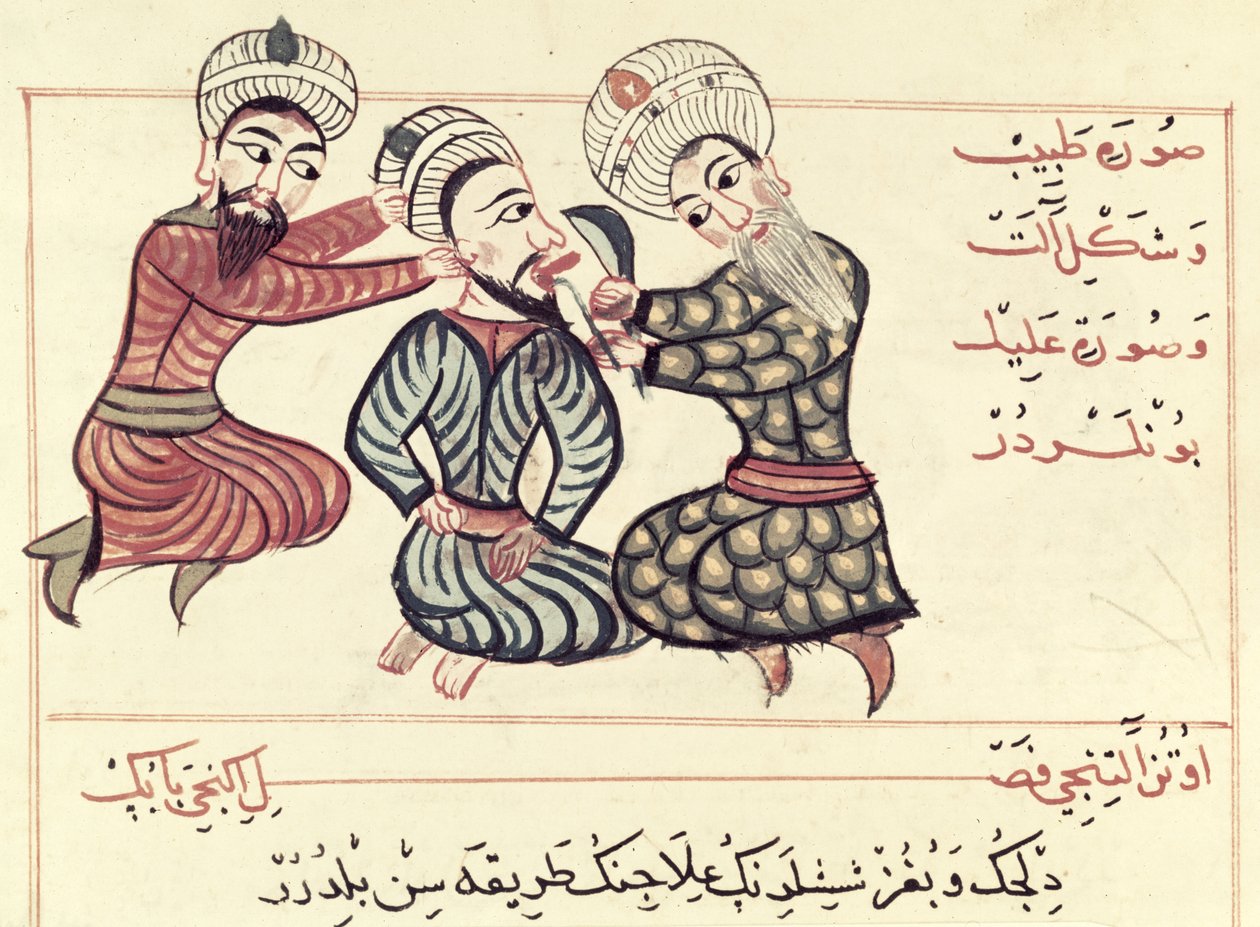 صُورَة طَبِيبْ
وَشَكْلِ آلَتْ
وَصُورَة عَلِيلْ
بُونْلَرْدُرْ
اوُتُزْ آلْتِنْجِي فَصْلِ اِكِنْجِي بَابُكْ
دِلْجِكُ وَ بُغُزْ شِيشْلَرِنُكْ عِلَاجِنُكْ طَرِيقَه سِنْ بِلْدُرُرْ